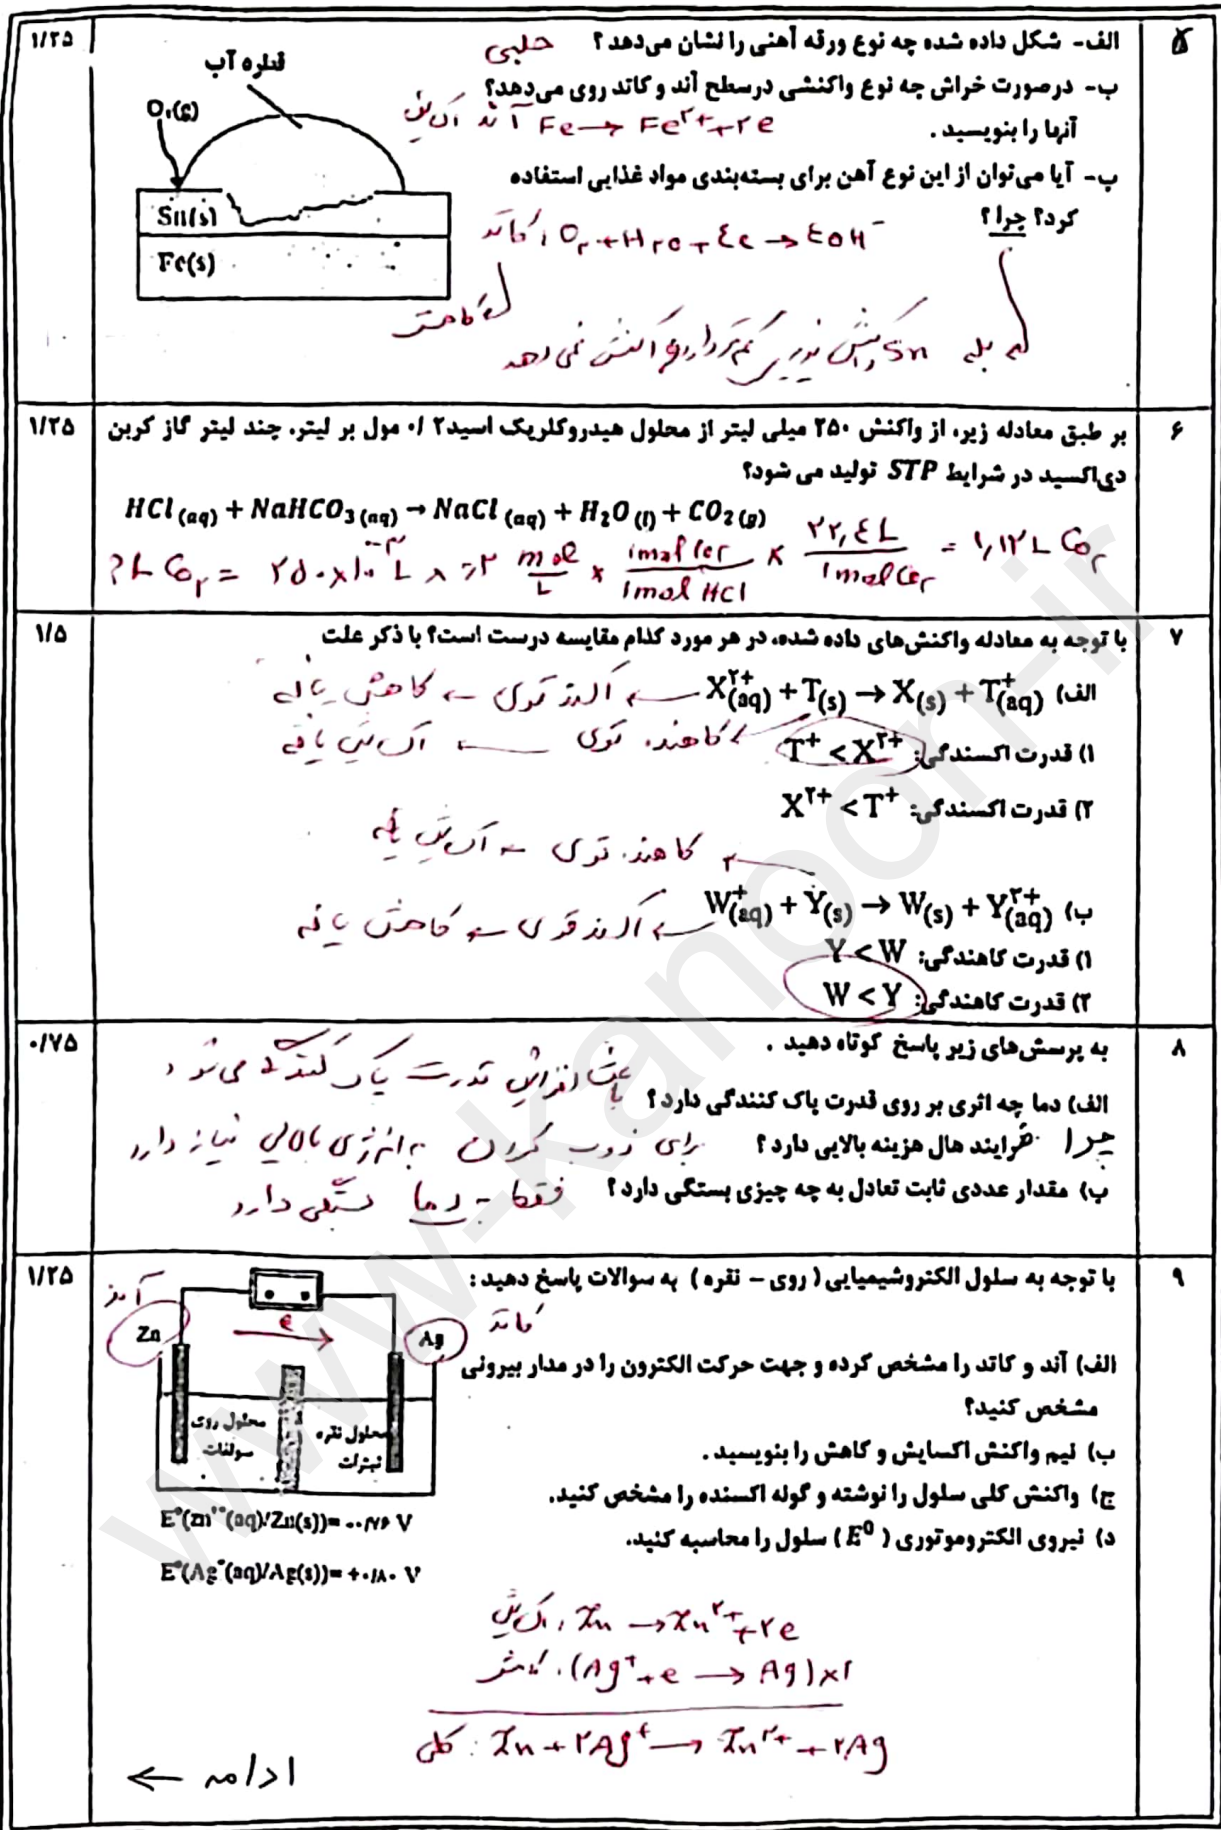 ۵
۱/۲۵
الف- شکل داده شده چه نوع ورقه آهنی را نشان می‌دهد؟ حلبی
ب- درصورت خراش چه نوع واکنشی درسطح آند و کاتد روی می‌دهد؟
آنها را بنویسید.
آند Fe → Fe²⁺ + ۲e
پ- آیا می‌توان از این نوع آهن برای بسته‌بندی مواد غذایی استفاده
کرد؟ چرا؟
کاتد: O₂ + H₂O + ۴e → ۴OH⁻
کاهش
بله Sn واکنش پذیری کم‌تر دارد و واکنش نمی دهد
قطره آب
O₂(g)
Sn(s)
Fe(s)
۶
۱/۲۵
بر طبق معادله زیر، از واکنش ۲۵۰ میلی لیتر از محلول هیدروکلریک اسید۲ /۰ مول بر لیتر، چند لیتر گاز کربن
دی‌اکسید در شرایط STP تولید می شود؟
HCl (aq) + NaHCO₃ (aq) → NaCl (aq) + H₂O (l) + CO₂ (g)
? L CO₂ = ۲۵۰×۱۰⁻³ L × ۰٫۲ mol/L × 1mol CO₂/1mol HCl × ۲۲٫۴ L/1mol CO₂ = ۱٫۱۲ L CO₂
۷
۱/۵
با توجه به معادله واکنش‌های داده شده، در هر مورد کدام مقایسه درست است؟ با ذکر علت
الف) X²⁺(aq) + T(s) → X(s) + T⁺(aq) اکسنده قوی → کاهش یافته
کاهنده قوی → اکسایش یافته
۱) قدرت اکسندگی: T⁺ < X²⁺
۲) قدرت اکسندگی: X²⁺ < T⁺
کاهنده قوی → اکسایش یافته
ب) W⁺(aq) + Y(s) → W(s) + Y²⁺(aq) اکسنده قوی → کاهش یافته
۱) قدرت کاهندگی: Y < W
۲) قدرت کاهندگی: W < Y
۸
۰/۷۵
به پرسش‌های زیر پاسخ کوتاه دهید .
الف) دما چه اثری بر روی قدرت پاک کنندگی دارد؟ باعث افزایش قدرت پاک کنندگی می شود
چرا فرایند هال هزینه بالایی دارد؟ برای ذوب کردن به انرژی بالایی نیاز دارد
ب) مقدار عددی ثابت تعادل به چه چیزی بستگی دارد؟ فقط به دما بستگی دارد
۹
۱/۲۵
با توجه به سلول الکتروشیمیایی ( روی – نقره ) به سوالات پاسخ دهید :
الف) آند و کاتد را مشخص کرده و جهت حرکت الکترون را در مدار بیرونی
مشخص کنید؟
ب) نیم واکنش اکسایش و کاهش را بنویسید .
ج) واکنش کلی سلول را نوشته و گونه اکسنده را مشخص کنید.
د) نیروی الکتروموتوری ( E⁰ ) سلول را محاسبه کنید.
آند
کاتد
Zn
e
Ag
محلول روی
سولفات
محلول نقره
نیترات
E°(zn²⁺(aq)/Zn(s))= -۰/۷۶ V
E°(Ag⁺(aq)/Ag(s))= +۰/۸۰ V
اکسایش: Zn → Zn²⁺ + ۲e
کاهش: (Ag⁺ + e → Ag)×۲
کلی: Zn + ۲Ag⁺ → Zn²⁺ + ۲Ag
ادامه ←
www-kanoon-ir